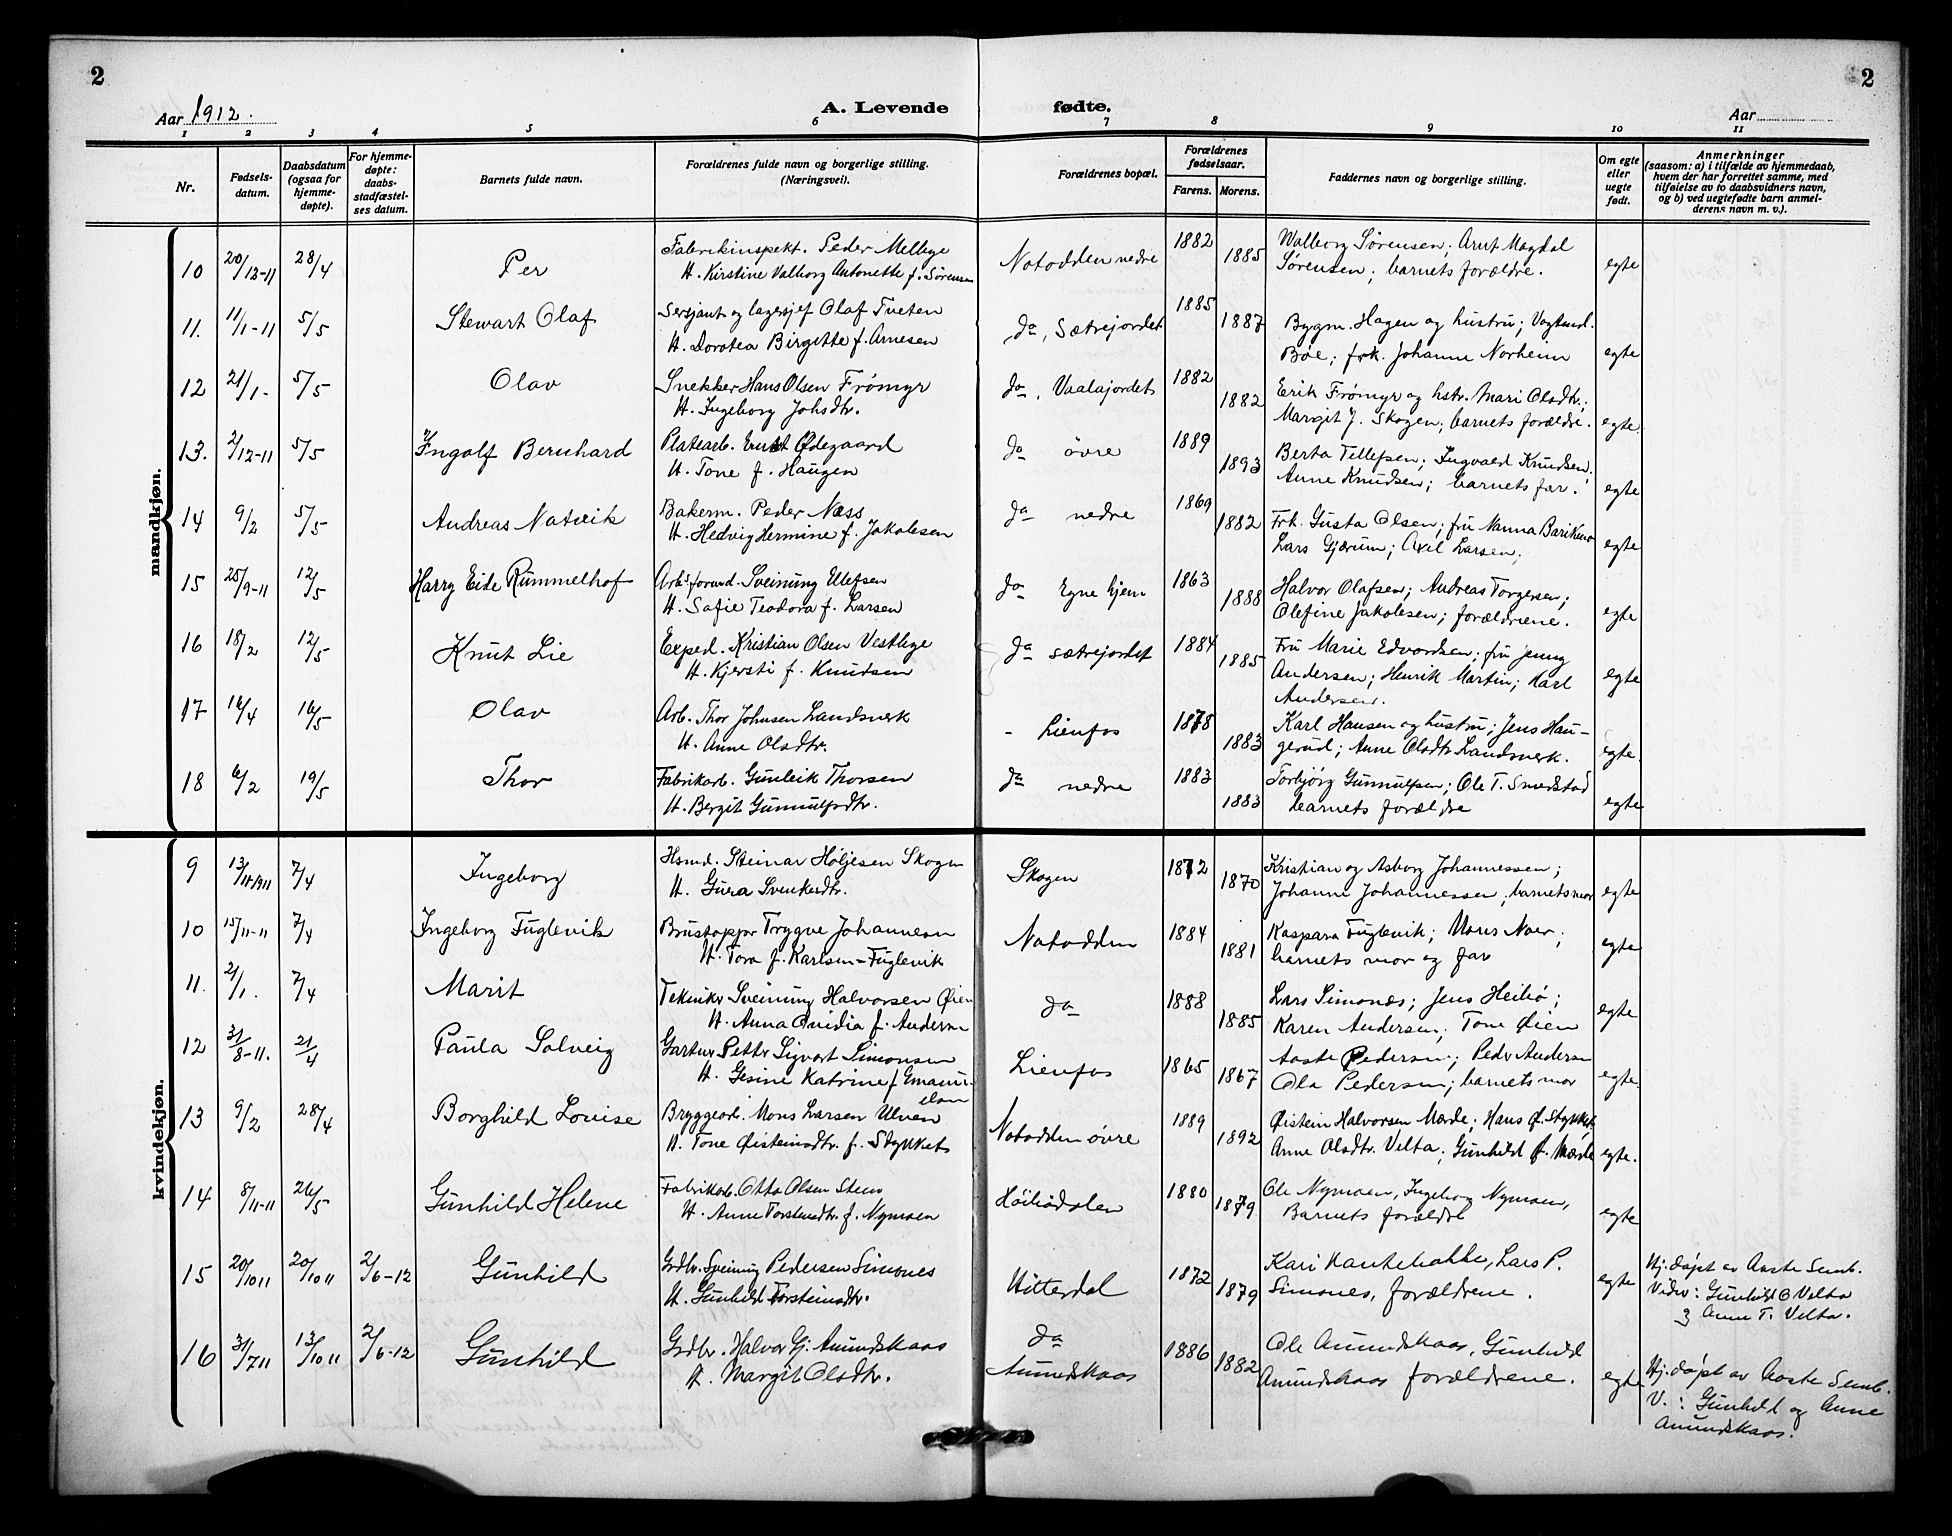 2
2
Aar 1912.
A. Levende fødte.
Aar
1 2 3 4 5 6 7 8 9 10 11
Nr.
Fødsels-
datum.
Daabsdatum
(ogsaa for
hjemme-
døpte).
For hjemme-
døpte:
daabs-
stadfæstel-
ses datum.
Barnets fulde navn.
Forældrenes fulde navn og borgerlige stilling.
(Næringsvei).
Forældrenes bopæl.
Forældrenes
fødselsaar.
Farens. Morens.
Faddernes navn og borgerlige stilling.
Om egte
eller
uegte
født.
Anmerkninger
(saasom: a) i tilfælde av hjemmedaab,
hvem der har forrettet samme, med
tilføielse av to daabsvidners navn,
og b) ved uegtefødte barn anmel-
derens navn m. v.).
mandkjøn.
10 20/12-11 28/4 Per Fabrikinspekt. Peder Mellbye Notodden nedre 1882 Valborg Sørensen; Arnt Magdal
H. Kirstine Valborg Antonette f. Sørensen 1885 Sørensen; barnets forældre. egte
11. 11/1-11 5/5 Stewart Olaf Sersjant og lagersjef Olaf Tveten do, Sætrejordet 1885
H. Dorotea Birgitte f. Arnesen 1887 Bygm. Hagen og hustru; Vagtmd.
Bøe; frk. Johanne Norheim egte
12 21/1- 5/5 Olav Snekker Hans Olsen Frömyr do, Vaalajordet 1882 Erik Frömyr og hstr. Mari Olsdtr.;
H. Ingeborg Johsdtr. 1882 Margit J. Skogen; barnets forældre. egte
13. 2/12-11 5/5 Ingolf Bernhard Platearb. Ernst Ødegaard do øvre 1889 Berta Tellefsen; Ingvald Knudsen;
H. Tone f. Haugen 1893 Anne Knudsen; barnets far. egte
14 9/2 5/5 Andreas Natvik Bakerm. Peder Næss do nedre 1869
H. Hedvig Hermine f. Jakobsen 1882 Frk. Gusta Olsen; fru Nanna
Lars Gjærum; Axel Larsen; egte
15 25/9-11 12/5 Harry Eide Rummelhof Arb.forind. Sveinung Ulefsen do Egne hjem 1863 Halvor Olafsen; Andreas Torgersen;
H. Sofie Teodora f. Larsen 1888 Olefine Jakobsen; forældrene. egte
16 18/2 12/5 Knut Lie Exped. Kristian Olsen Vestbye do sætrejordet 1884 Fru Marie Edvardsen; fru Jenny
H. Kjersti f. Knudsen 1885 Andersen; Henrik Martin; Karl
Andersen. egte
17 14/4 16/5 Olav Arb. Thor Johnsen Landsverk - Lienfos 1878 Karl Hansen og hustru; Jens Hau-
H. Anne Olsdtr. 1883 gerud; Anne Olsdtr Landsverk. egte.
18 6/2 19/5 Thor Fabrikarb. Gunleik Thorsen do nedre 1883 Torbjörg Gunnulfsen; Ole T. Smedstad
H. Bergit Gunnulfsdtr. 1883 barnets forældre egte
kvindekjøn.
9 13/11-1911 7/4 Ingeborg Hsmd. Steinar Høljesen Skogen Skogen 1872 Kristian og Asborg Johannessen;
H. Gura Svenkesdtr. 1870 Johanne Johannessen; barnets mor egte
10 15/11-11 7/4 Ingeborg Fuglevik Brustopper Trygve Johannesen Notodden 1884 Kaspara Fuglevik; Mons Noer;
H. Tora f. Karlsen-Fuglevik 1881 barnets mor og far egte
11. 2/1. 7/4 Marit Tekniker Sveinung Halvorsen Øien do 1888 Lars Simonæs; Jens Heibø;
H. Anna Ovidia f. Andersen 1885 Karen Andersen; Tone Øien egte
12 31/8-11. 21/4 Paula Solveig Gartner Petter Sigvart Simonsen Lienfos 1865 Aaste Pedersen; Peder Andersen
H. Gesine Katrine f Emanu- 1867 Ola Pedersen; barnets mor egte
elsen
13 9/2 28/4 Borghild Louise Bryggearb. Mons Larsen Ulven Notodden øvre 1889 Øistein Halvorsen Mærde; Hans Ø. Stykket
H. Tone Øisteinsdtr. f. Stykket 1892 Anne Olsdtr. Velta; Gunhild Ø. Mærde egte.
14 8/11-11 26/5 Gunhild Helene Fabrikarb. Otto Olsen Steen Høibødalen 1880 Ole Nymoen, Ingeborg Nymoen,
H. Anne Torsteinsdtr. f. Nymoen 1879 Barnets forældre egte
15 20/10 11 20/10 11 2/6-12 Gunhild Grdbr. Sveinung Pedersen Simones Hitterdal 1872 Kari Kaasebakke, Lars P.
H. Gunhild Torsteinsdtr. 1879 Simones, forældrene. egte
Hj. døpt av Aaste Semb.
Vidner: Gunhild O Velta
og Anne T. Velta.
16 31/7 11 13/10 11 2/6-12 Gunhild Grdbr. Halvor Gj. Amundskaas do 1886 Ole Amundskaas, Gunhild
H. Margit Olsdtr. Amundskaas 1882 Amundskaas forældrene. egte
Hj. døpt av Aaste Semb.
V.: Gunhild og Anne
Amundskaas.